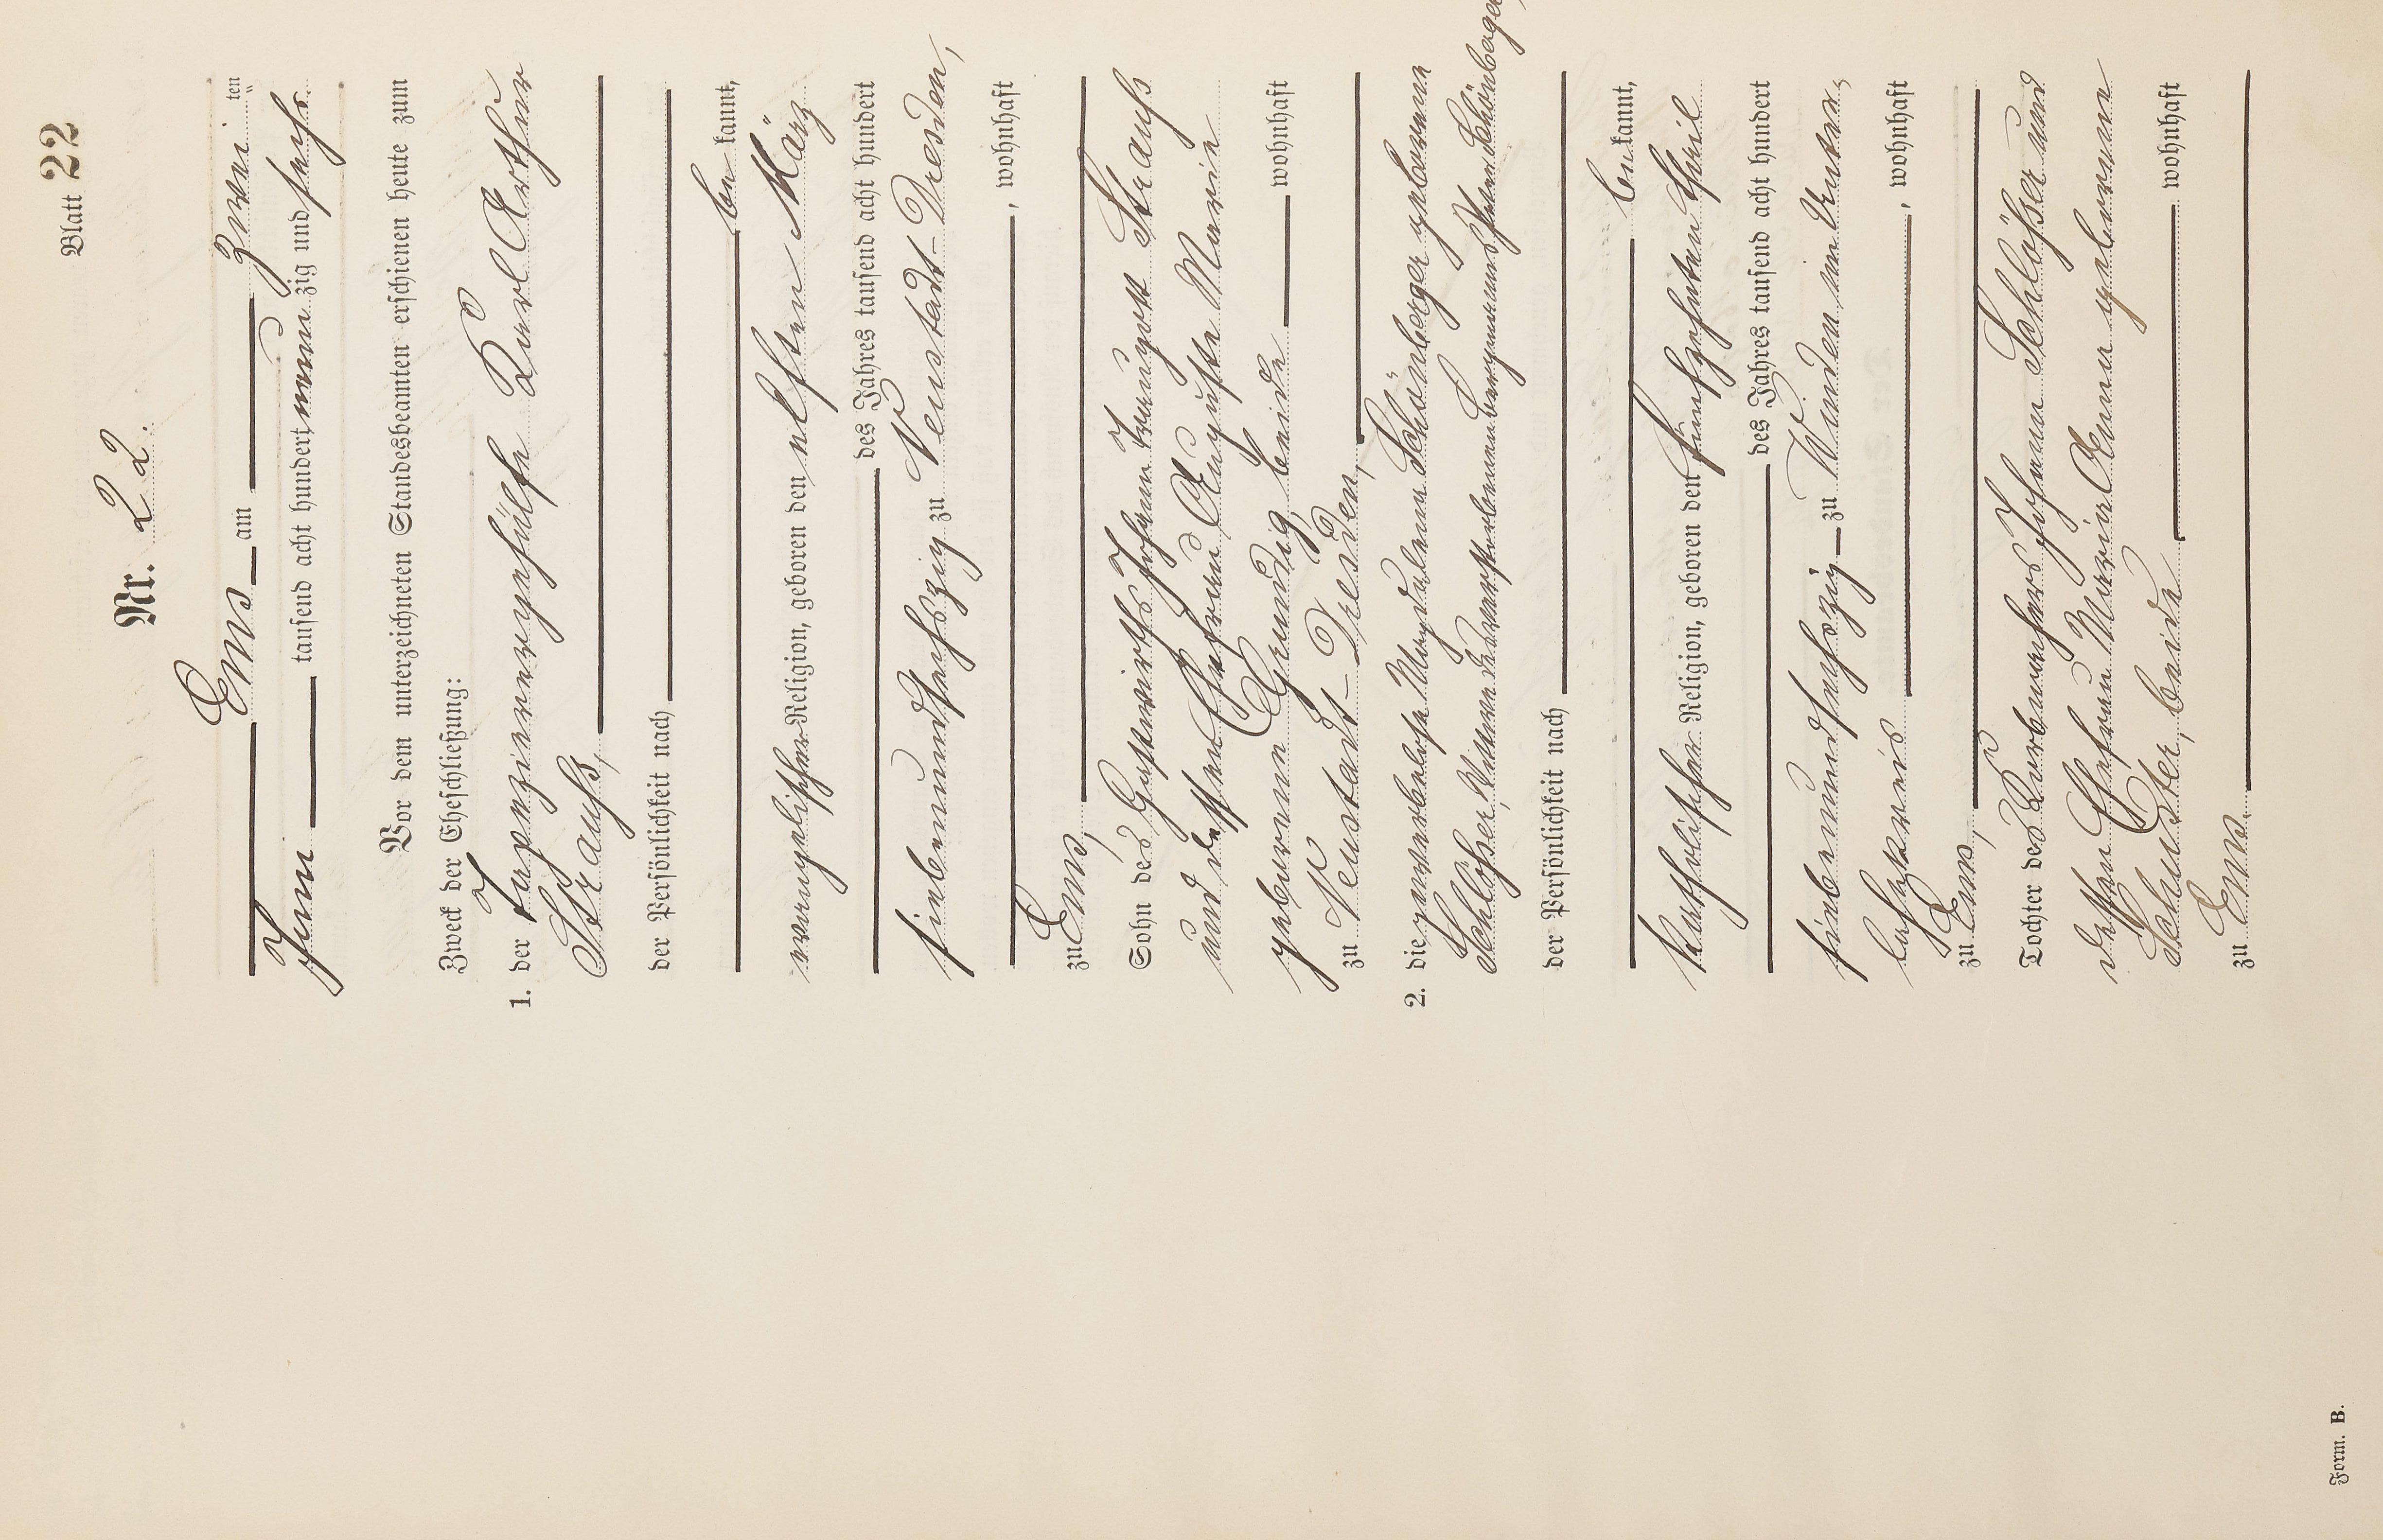 Blatt 22
Nr. 22.
Ems am zwei ten
Juni tausend acht hundert neun zig und sechs
Vor dem unterzeichneten Standesbeamten erschienen heute zum
Zweck der Eheschließung:
1. der Tapezierergehülfe Karl Arthur
Strauß,
der Persönlichkeit nach
be kannt,
evangelischer Religion, geboren den elften März
des Jahres tausend acht hundert
siebenundsechszig zu Neustadt-Dresden,
, wohnhaft
zu Ems,
Sohn des Gastwirths Johann Traugott Strauß
und dessen Ehefrau Auguste Marie
geborene Grundig, beide wohnhaft
zu Neustadt-Dresden,
2. die gewerbelose Magdalena Schönberger geborene
Schlößer, Wittwe des verstorbenen Bergmanns Peter Schönberger,
der Persönlichkeit nach
be kannt,
katholischer Religion, geboren den fünfzehnten April
des Jahres tausend acht hundert
siebenundsechszig zu Winden im Unter,
lahnkreis , wohnhaft
zu Ems,
Tochter des Johann Schlößer und
dessen Ehefrau Maria Anna geborene
Schuster, beide wohnhaft
zu Ems.
Form. B.